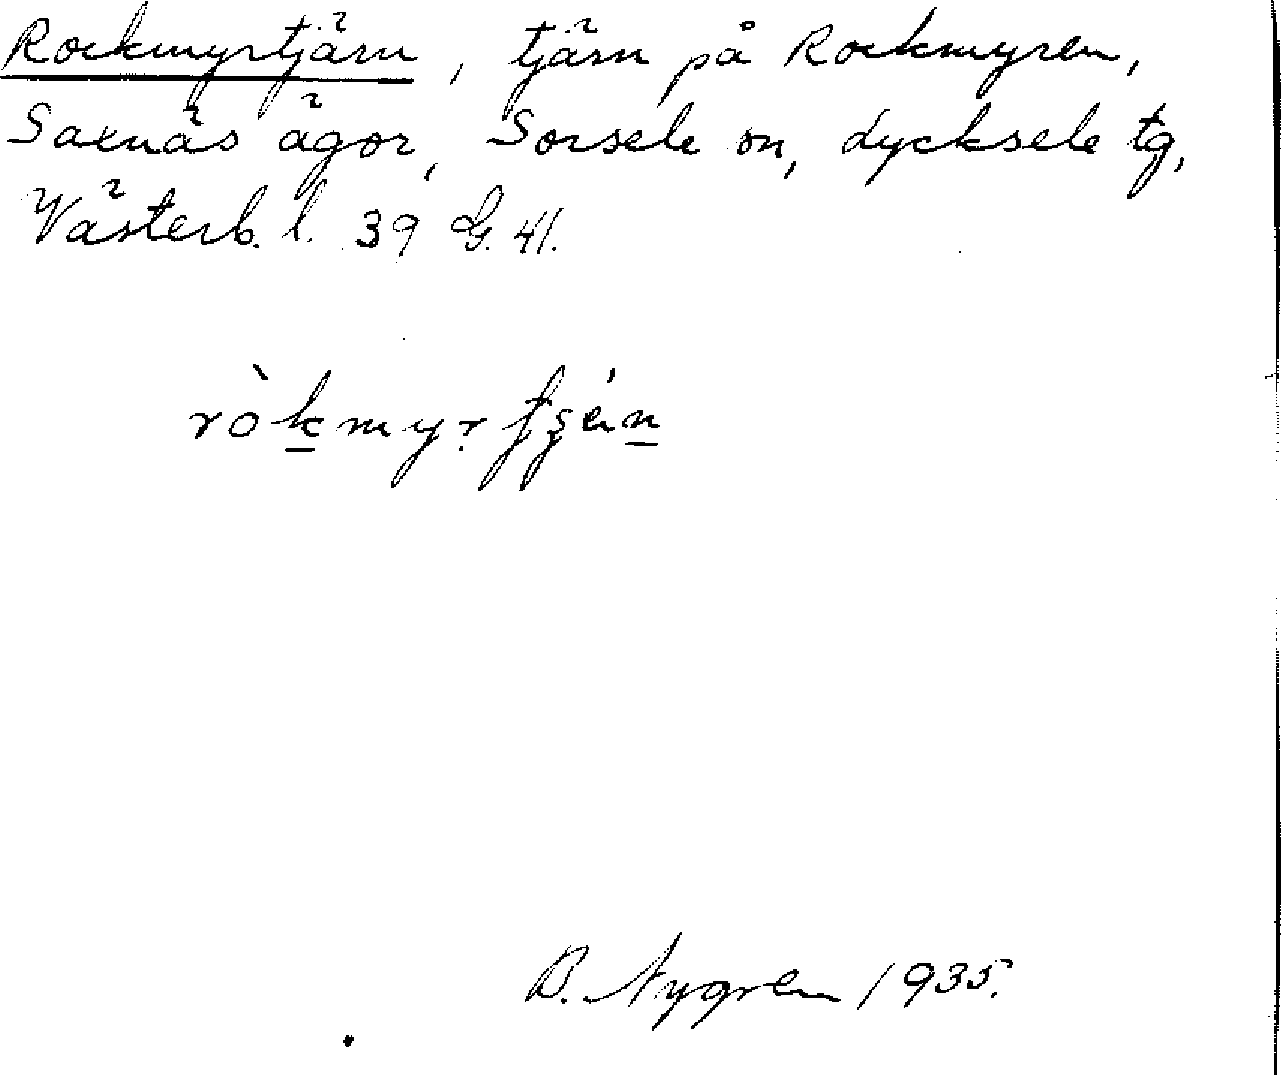 Rockmyrtjärn, tjärn på Rockmyren,
Saxnäs ägor, Sorsele sn, Lycksele tg,
Västerb. l. 39 G. 41.
B. Nygren 1935.